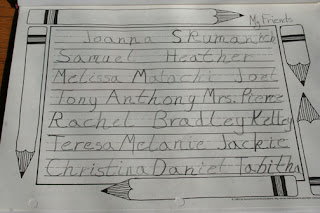 My Friends
Joanna S Ruman
Samuel Heather
Melissa Malachi Joel
Tony Anthony Mrs. Pierre
Rachel Bradley Kelley
Teresa Melanie Jackie
Christina Daniel Tabitha